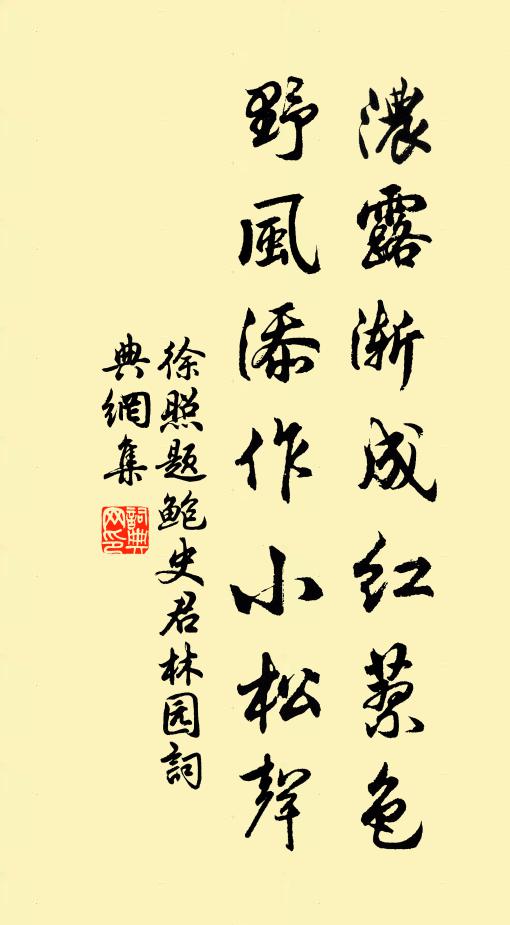 濃露漸成紅蔾色
野風添作小松聲
徐照题鲍史君林园詞
典網集
詞典网印